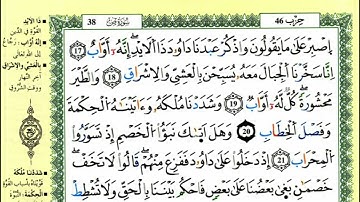 حِزْب 46
سُورَةُ صَ
38
اِصْبِرْ عَلَىٰ مَا يَقُولُونَ وَاذْكُرْ عَبْدَنَا دَاوُۥدَ ذَا اَلَايْدِ إِنَّهُۥٓ أَوَّابٌ 17
اِنَّا سَخَّرْنَا اَلْجِبَالَ مَعَهُۥ يُسَبِّحْنَ بِالْعَشِيِّ وَالِاشْرَاقِ 18 وَالطَّيْرَ
مَحْشُورَةً كُلٌّ لَّهُۥٓ أَوَّابٌ 19 وَشَدَدْنَا مُلْكَهُۥ وَءَاتَيْنَٰهُ اُلْحِكْمَةَ
وَفَصْلَ اَلْخِطَابِ 20 وَهَلَ اَتَىٰكَ نَبَؤُاْ اُلْخَصْمِ إِذْ تَسَوَّرُواْ
اُلْمِحْرَابَ 21 إِذْ دَخَلُواْ عَلَىٰ دَاوُۥدَ فَفَزِعَ مِنْهُمْ قَالُواْ لَا تَخَفْ
خَصْمَٰنِ بَغَىٰ بَعْضُنَا عَلَىٰ بَعْضٍ فَاحْكُم بَيْنَنَا بِالْحَقِّ وَلَا تُشْطِطْ
ذا الأيد
القوة في الدين
إنه أواب: رجاع
بالعشي والإشراق
آخر النهار
ووقت الشروق
شددنا ملكه
قويناه بأسباب القوة